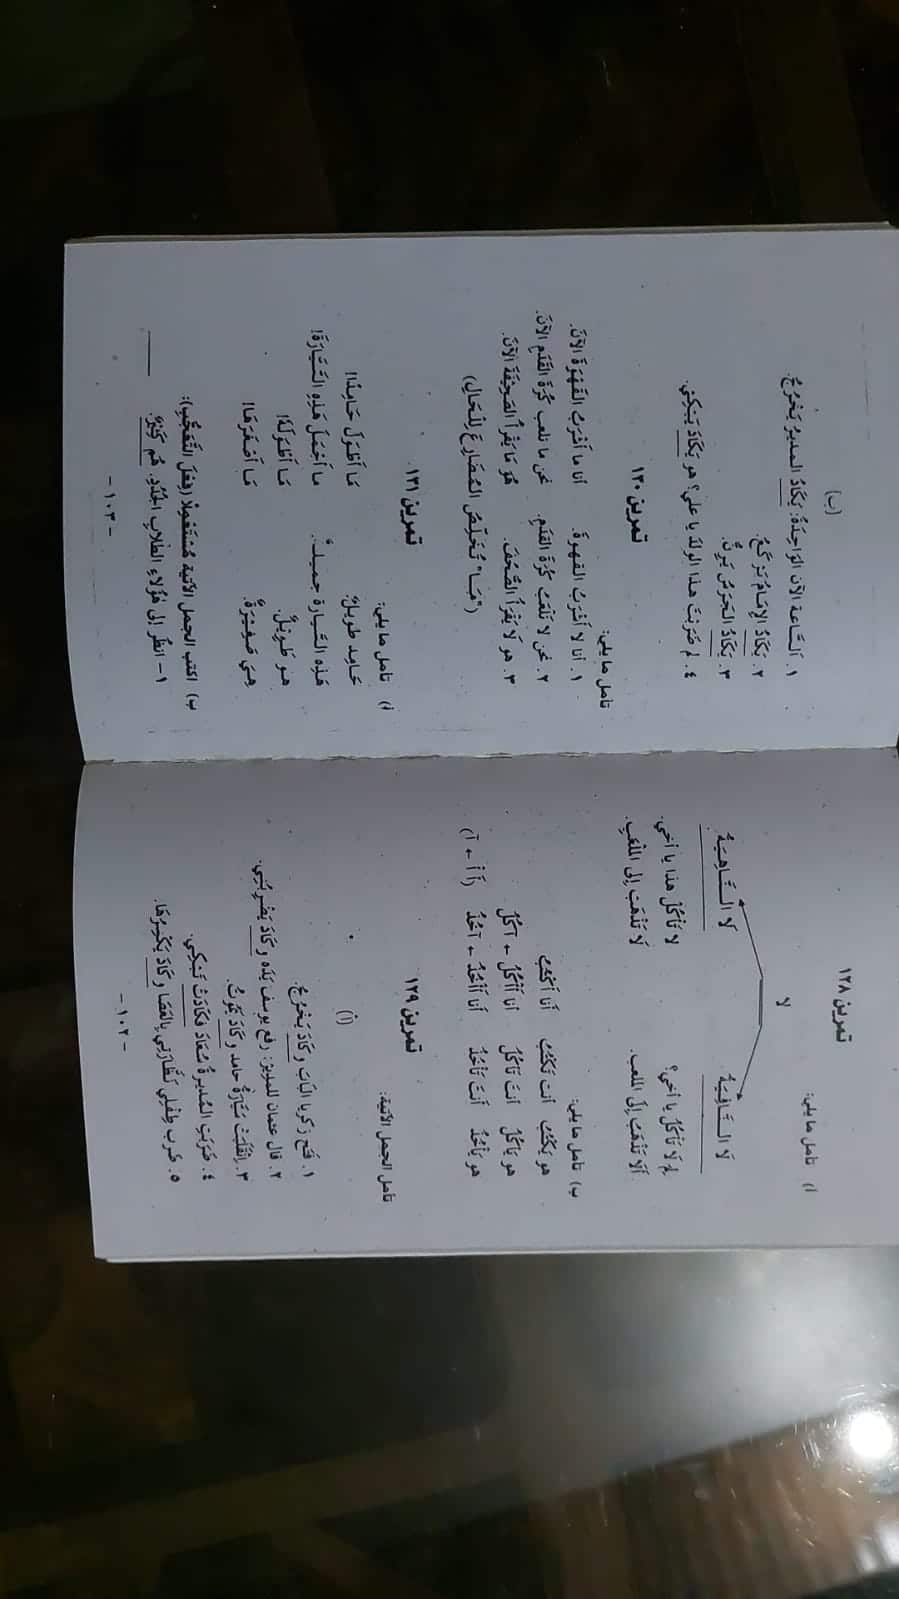 تمرين ١٢٨
أ) تأمل ما يلي:
لا
لَا النَّافِيَةُ لَا النَّاهِيَةُ
لِمَ لَا تَأْكُلُ يا أخي؟ لا تَأْكُلْ هذا يا أخي.
أَلَا تَذْهَبُ إِلَى الملعب. لَا تَذْهَبْ إلى المَلْعَبِ.
ب) تأمل ما يلي:
هو يَكْتُبُ أنت تَكْتُبُ أنا أَكْتُبُ
هو يَأْكُلُ أنتَ تَأْكُلُ أنا أَأْكُلُ ← آكُلُ
هو يَأْخُذُ أنتَ تَأْخُذُ أنا أَأْخُذُ ← آخُذُ (أَ أْ ← آ)
تمرين ١٢٩
تأمل الجمل الآتية:
(أ)
١. فَتَحَ زكريا البَابَ وَكَادَ يَخْرُجُ.
٢. قال عثمان للمدير: رفع يوسف يَدَه وكَادَ يَضْرِبُنِي.
٣. اِنْقَلَبَتْ سَيَّارَةُ حامد وكَادَ يَمُوتُ.
٤. ضَرَبَتِ المُدِيرَةُ سُعَادَ فَكَادَتْ تَبْكِي.
٥. ضرب طِفْلِي نَظَّارَتِي بِالعَصَا وكَادَ يَكْسِرُهَا.
- ١٠٢ -
(ب)
١. اَلسَّاعة الآن الوَاحِدَةُ: يَكَادُ المديرُ يَخْرُجُ.
٢. يَكَادُ الإِمَامُ يَرْكَعُ.
٣. يَكَادُ الجَرَسُ يَرِنُّ.
٤. لِمَ ضَرَبْتَ هذا الولدَ يا علي؟ هو يَكَادُ يَبْكِي.
تمرين ١٣٠
تأمل ما يلي:
١. أنا لا أَشْرَبُ القهوةَ. أنا ما أَشْرَبُ القَهْوَةَ الآنَ.
٢. نحن لا نَلْعَبُ كُرَةَ القَدَمِ. نحن ما نلعب كُرَةَ القَدَمِ الآنَ.
٣. هو لَا يَقْرَأُ الصُّحُفَ. هُو مَا يَقْرَأُ الصَّحِيفَةَ الآنَ.
("مَـا" تُخَلِّصُ المُضَارِعَ لِلْحَالِ)
تمرين ١٣١
أ) تأمل ما يلي:
حَامِد طويلٌ. مَـا أَطْوَلَ حَامِدًا!
هَذِه السَّيارة جميلـةٌ. ما أَجْمَلَ هَذِهِ السَّيَّارَةَ!
هـو طَـوِيْلٌ. مَـا أَطْـوَلَهُ!
هِيَ صَـغِيْـرَةٌ. مَـا أَصْـغَـرَهَـا!
ب) اكتب الجمل الآتيةَ مُسْتَعْمِلًا (فِعْلَ التَّعَجُّبِ):
١- انظُر إلى هَؤُلاءِ الطُّلَّابِ الجُدُدِ. هُم كَثِيْرٌ.
- ١٠٣ -